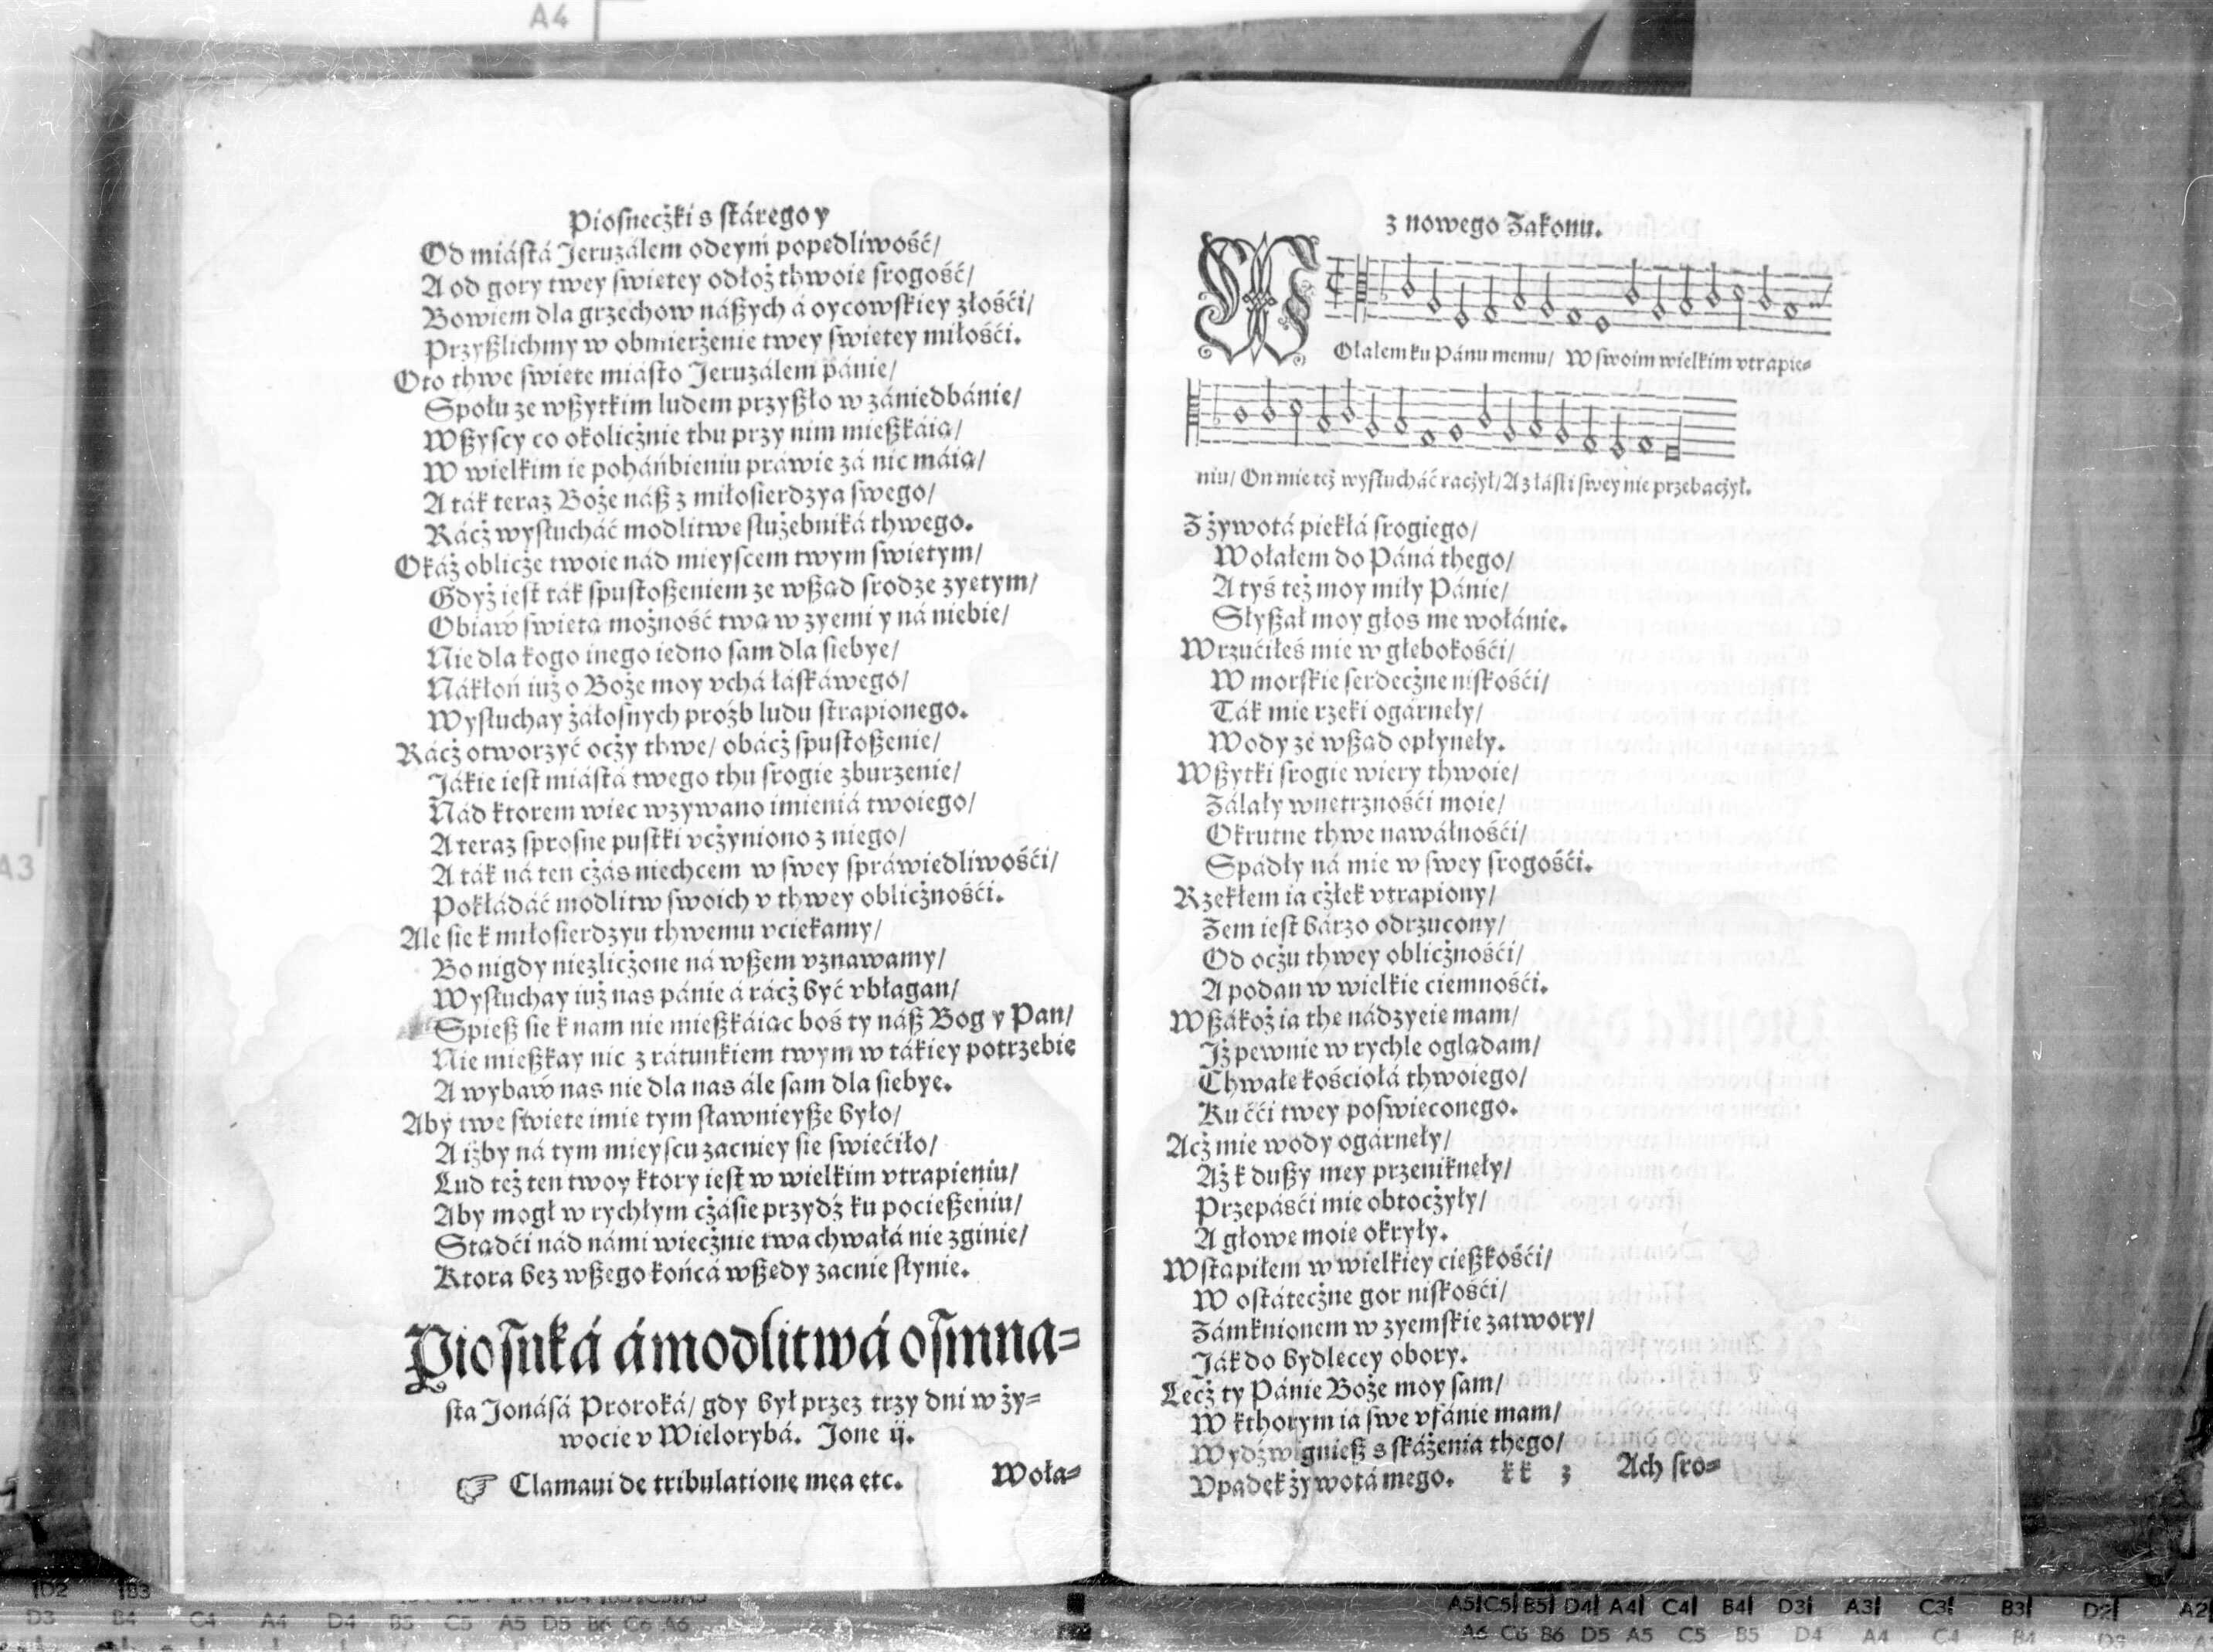 Piosnecżki s stárego y
Od miástá Jeruzálem odeymi popedliwość/
A od gory twey swietey odłoż thwoie srogość/
Bowiem dla grzechow nászych á oycowskiey złośći/
Przyszlichmy w obmierżenie twey swietey miłośći.
Oto thwe swiete miásto Jeruzálem pánie/
Społu ze wszytkim ludem przyszło w zániedbánie/
Wszyscy co okolicżnie thu przy nim mieszkáią/
W wielkim ie poháńbieniu práwie zá nic máią/
A ták teraz Boże nász z miłosierdzya swego/
Rácż wysłucháć modlitwe służebniká thwego.
Okáż oblicże twoie nád mieyscem twym swietym/
Gdyż iest ták spustoszeniem ze wsząd srodze zyetym/
Obiaw swietą możność twą w zyemi y ná niebie/
Nie dla kogo inego iedno sam dla siebye/
Nákłoń iuż o Boże moy vchá łáskáwego/
Wysłuchay żáłosnych proźb ludu strapionego.
Rácż otworzyć ocży thwe/ obácż spustoszenie/
Jákie iest miástá twego thu srogie zburzenie/
Nád ktorem wiec wzywano imieniá twoiego/
A teraz sprosne pustki vcżyniono z niego/
A ták ná ten cżás niechcem w swey spráwiedliwośći/
Pokłádáć modlitw swoich v thwey oblicżnośći.
Ale sie k miłosierdzyu thwemu vciekamy/
Bo nigdy niezlicżone ná wszem vznawamy/
Wysłuchay iuż nas pánie á rácż być vbłagan/
Spiesz sie k nam nie mieszkáiąc boś ty nász Bog y Pan/
Nie mieszkay nic z rátunkiem twym w tákiey potrzebie
A wybaw nas nie dla nas ále sam dla siebye.
Aby twe swiete imie tym sławnieysze było/
A iżby ná tym mieyscu zacniey sie swiećiło/
Lud też ten twoy ktory iest w wielkim vtrapieniu/
Aby mogł w rychłym cżásie przydź ku pocieszeniu/
Stądći nád námi wiecżnie twa chwałá nie zginie/
Ktora bez wszego końcá wszedy zacnie słynie.
Piosnká á modlitwá osmna-
sta Jonásá Proroká/ gdy był przez trzy dni w ży-
wocie v Wielorybá. Jone ij.
☞ Clamaui de tribulatione mea etc.
Woła-
z nowego Zakonu.
WOłałem ku Pánu memu/ W swoim wielkim vtrapie-
niu/ On mie też wysłucháć racżył/ A z łáski swey nie przebacżył.
Z żywotá piekłá srogiego/
Wołałem do Páná thego/
A tyś też moy miły Pánie/
Słyszał moy głos me wołánie.
Wrzućiłeś mie w głebokośći/
W morskie serdecżne niskośći/
Ták mie rzeki ogárneły/
Wody ze wsząd opłyneły.
Wszytki srogie wiery thwoie/
Zálały wnetrznośći moie/
Okrutne thwe nawáłnośći/
Spádły ná mie w swey srogośći.
Rzekłem ia cżłek vtrapiony/
Zem iest bárzo odrzucony/
Od ocżu thwey oblicżnośći/
A podan w wielkie ciemnośći.
Wszákoż ia the nádzyeie mam/
Jż pewnie w rychle oglądam/
Chwałe kościołá thwoiego/
Ku ćći twey poswieconego.
Acż mie wody ogárneły/
Aż k duszy mey przeniknęły/
Przepáśći mie obtocżyły/
A głowe moie okryły.
Wstąpiłem w wielkiey cieszkośći/
W ostátecżne gor niskośći/
Zámknionem w zyemskie zatwory/
Ják do bydlecey obory.
Lecż ty Pánie Boże moy sam/
W kthorym ia swe vfánie mam/
Wydźwigniesz s skáżenia thego/
Vpadek żywotá mego.
kk 3
Ach sro-